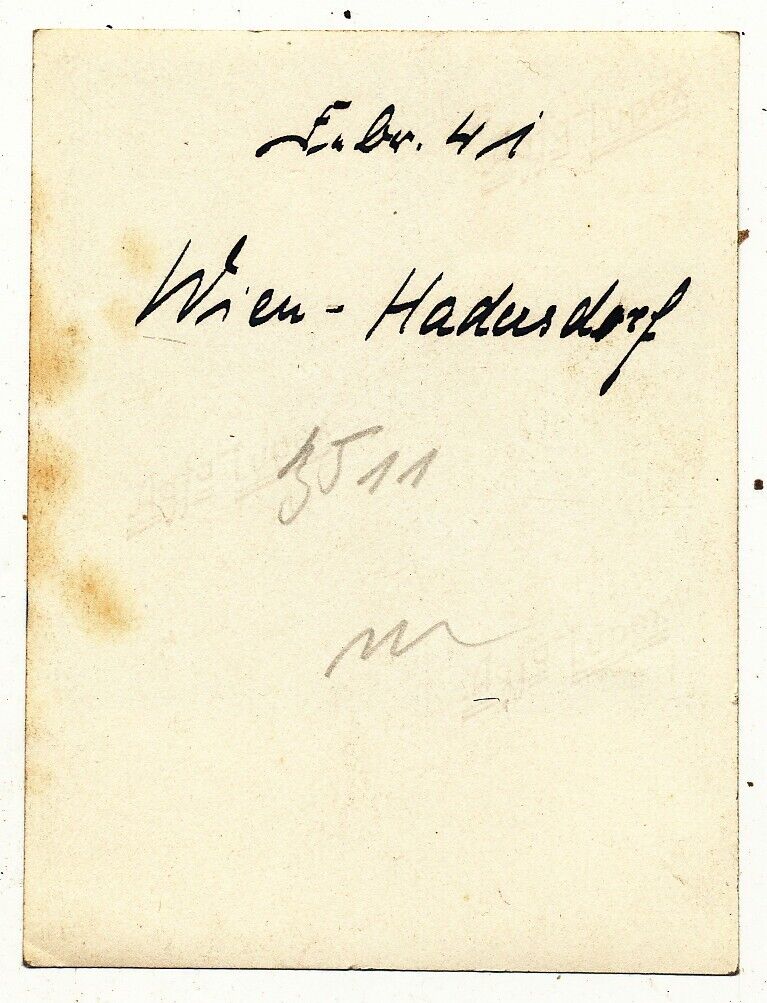 Febr. 41
Wien - Hadersdorf
3511